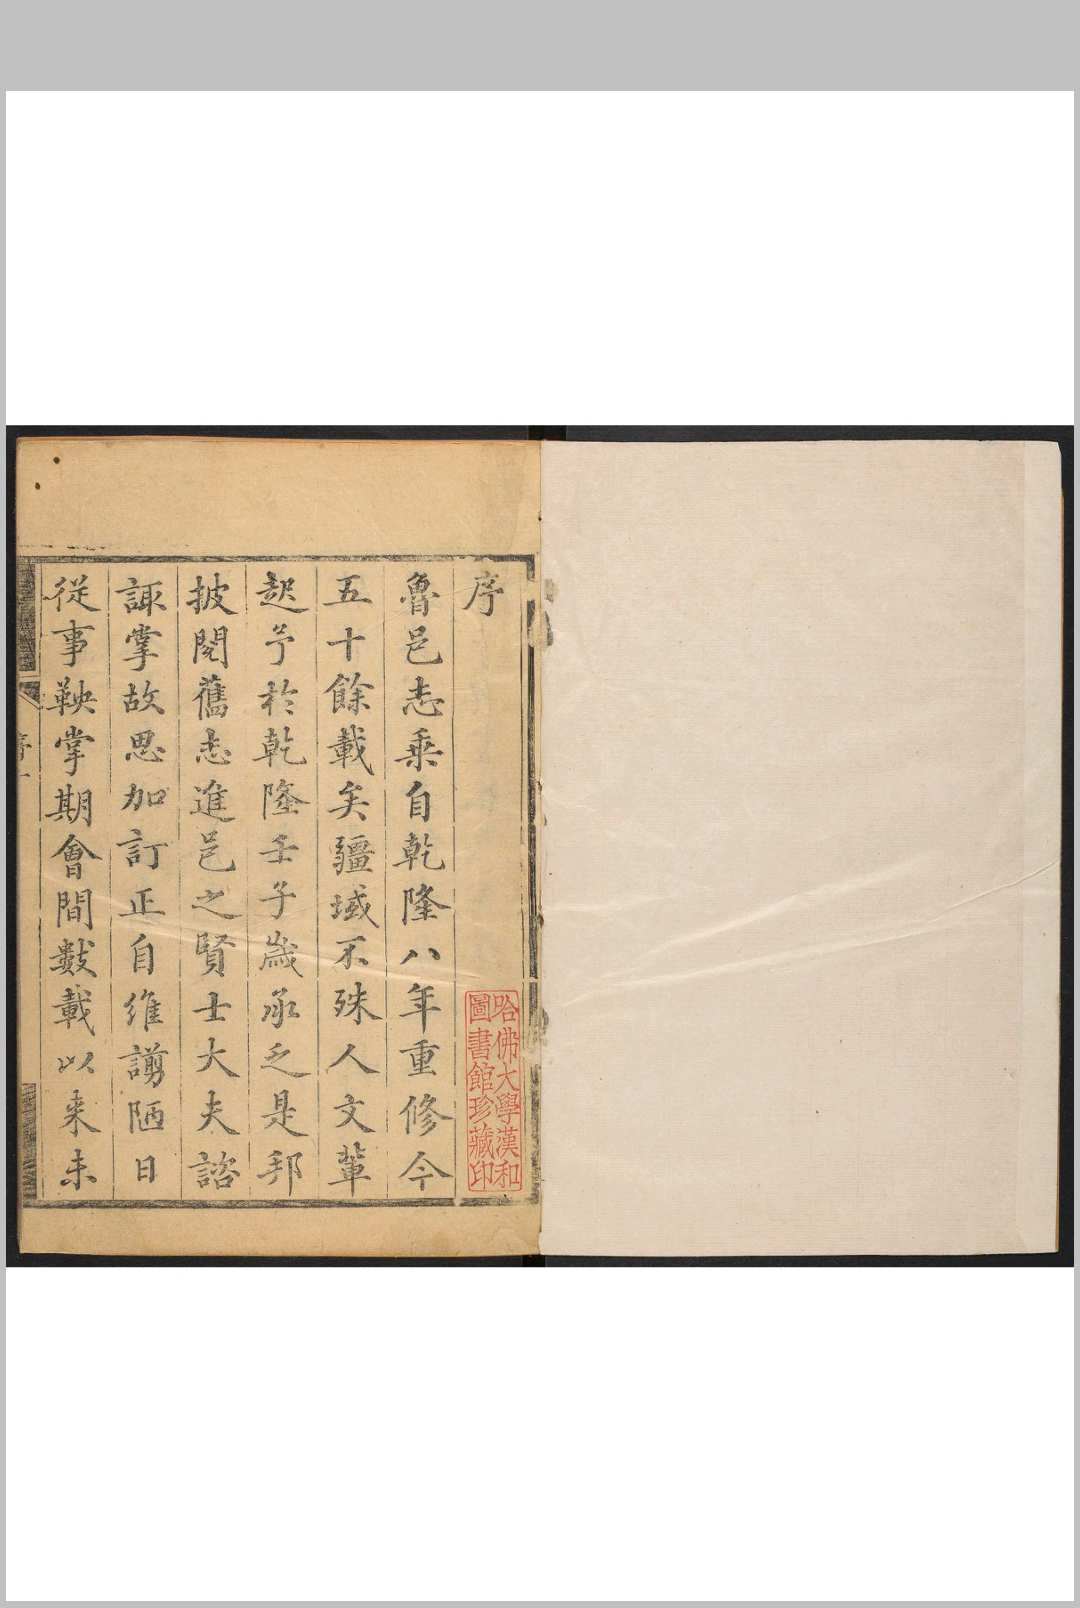 序
魯邑志乘自乾隆八年重修今
五十餘載矣疆域不殊人文輩
起予於乾隆壬子歲承乏是邦
披閱舊志進邑之賢士大夫諮
諏掌故思加訂正自維謭陋日
從事鞅掌期會間數載以来未
哈佛大學漢和
圖書館珍藏印